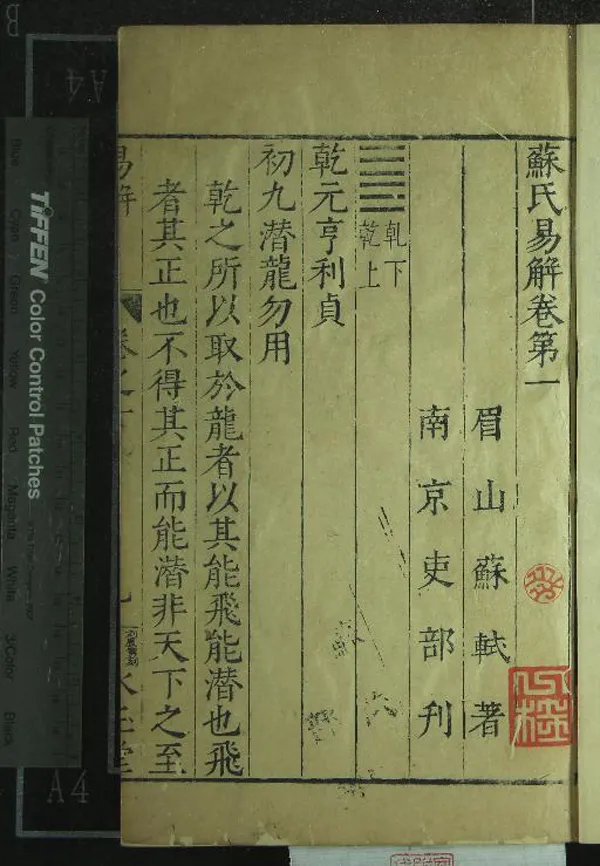 蘇氏易解卷第一
眉山蘇軾著
南京吏部刋
乹下
乾上
乾元亨利貞
初九潜龍勿用
乾之所以取於龍者以其能飛能潜也飛
者其正也不得其正而能潜非天下之至
易解
TIFFEN Color Control Patches
Blue
Cyan
Green
Yellow
Red
Magenta
White
3/Color
Black
A4